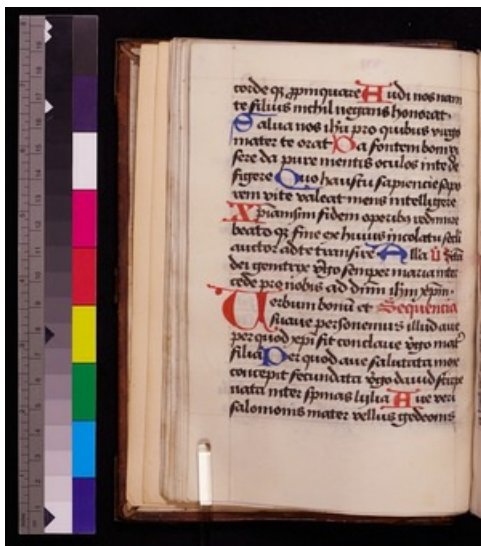 corde q; ppinquare Audi nos nam
te filius nichil negans honorat
Salua nos ihu pro quibus virgo
mater te orat Da fontem boni vi
sere da pure mentis oculos in te de
figere Quo haustu sapiencie sapo
rem vite valeat mens intelligere
Xpianismi fidem operibus redimire
beato q; fine ex huius incolatu seculi
auctor ad te transire Alla
dei genitrix vgo semper maria inter
cede pro nobis ad dnm ihm xpm
Verbum bonu et Sequencia
suaue personemus illud aue
per quod xpi fit conclaue vgo mat
filia Per quod aue salutata mox
concepit fecundata vgo dauid stirpe
nata inter spinas lylia Aue veri
salomonis mater vellus gedeonis